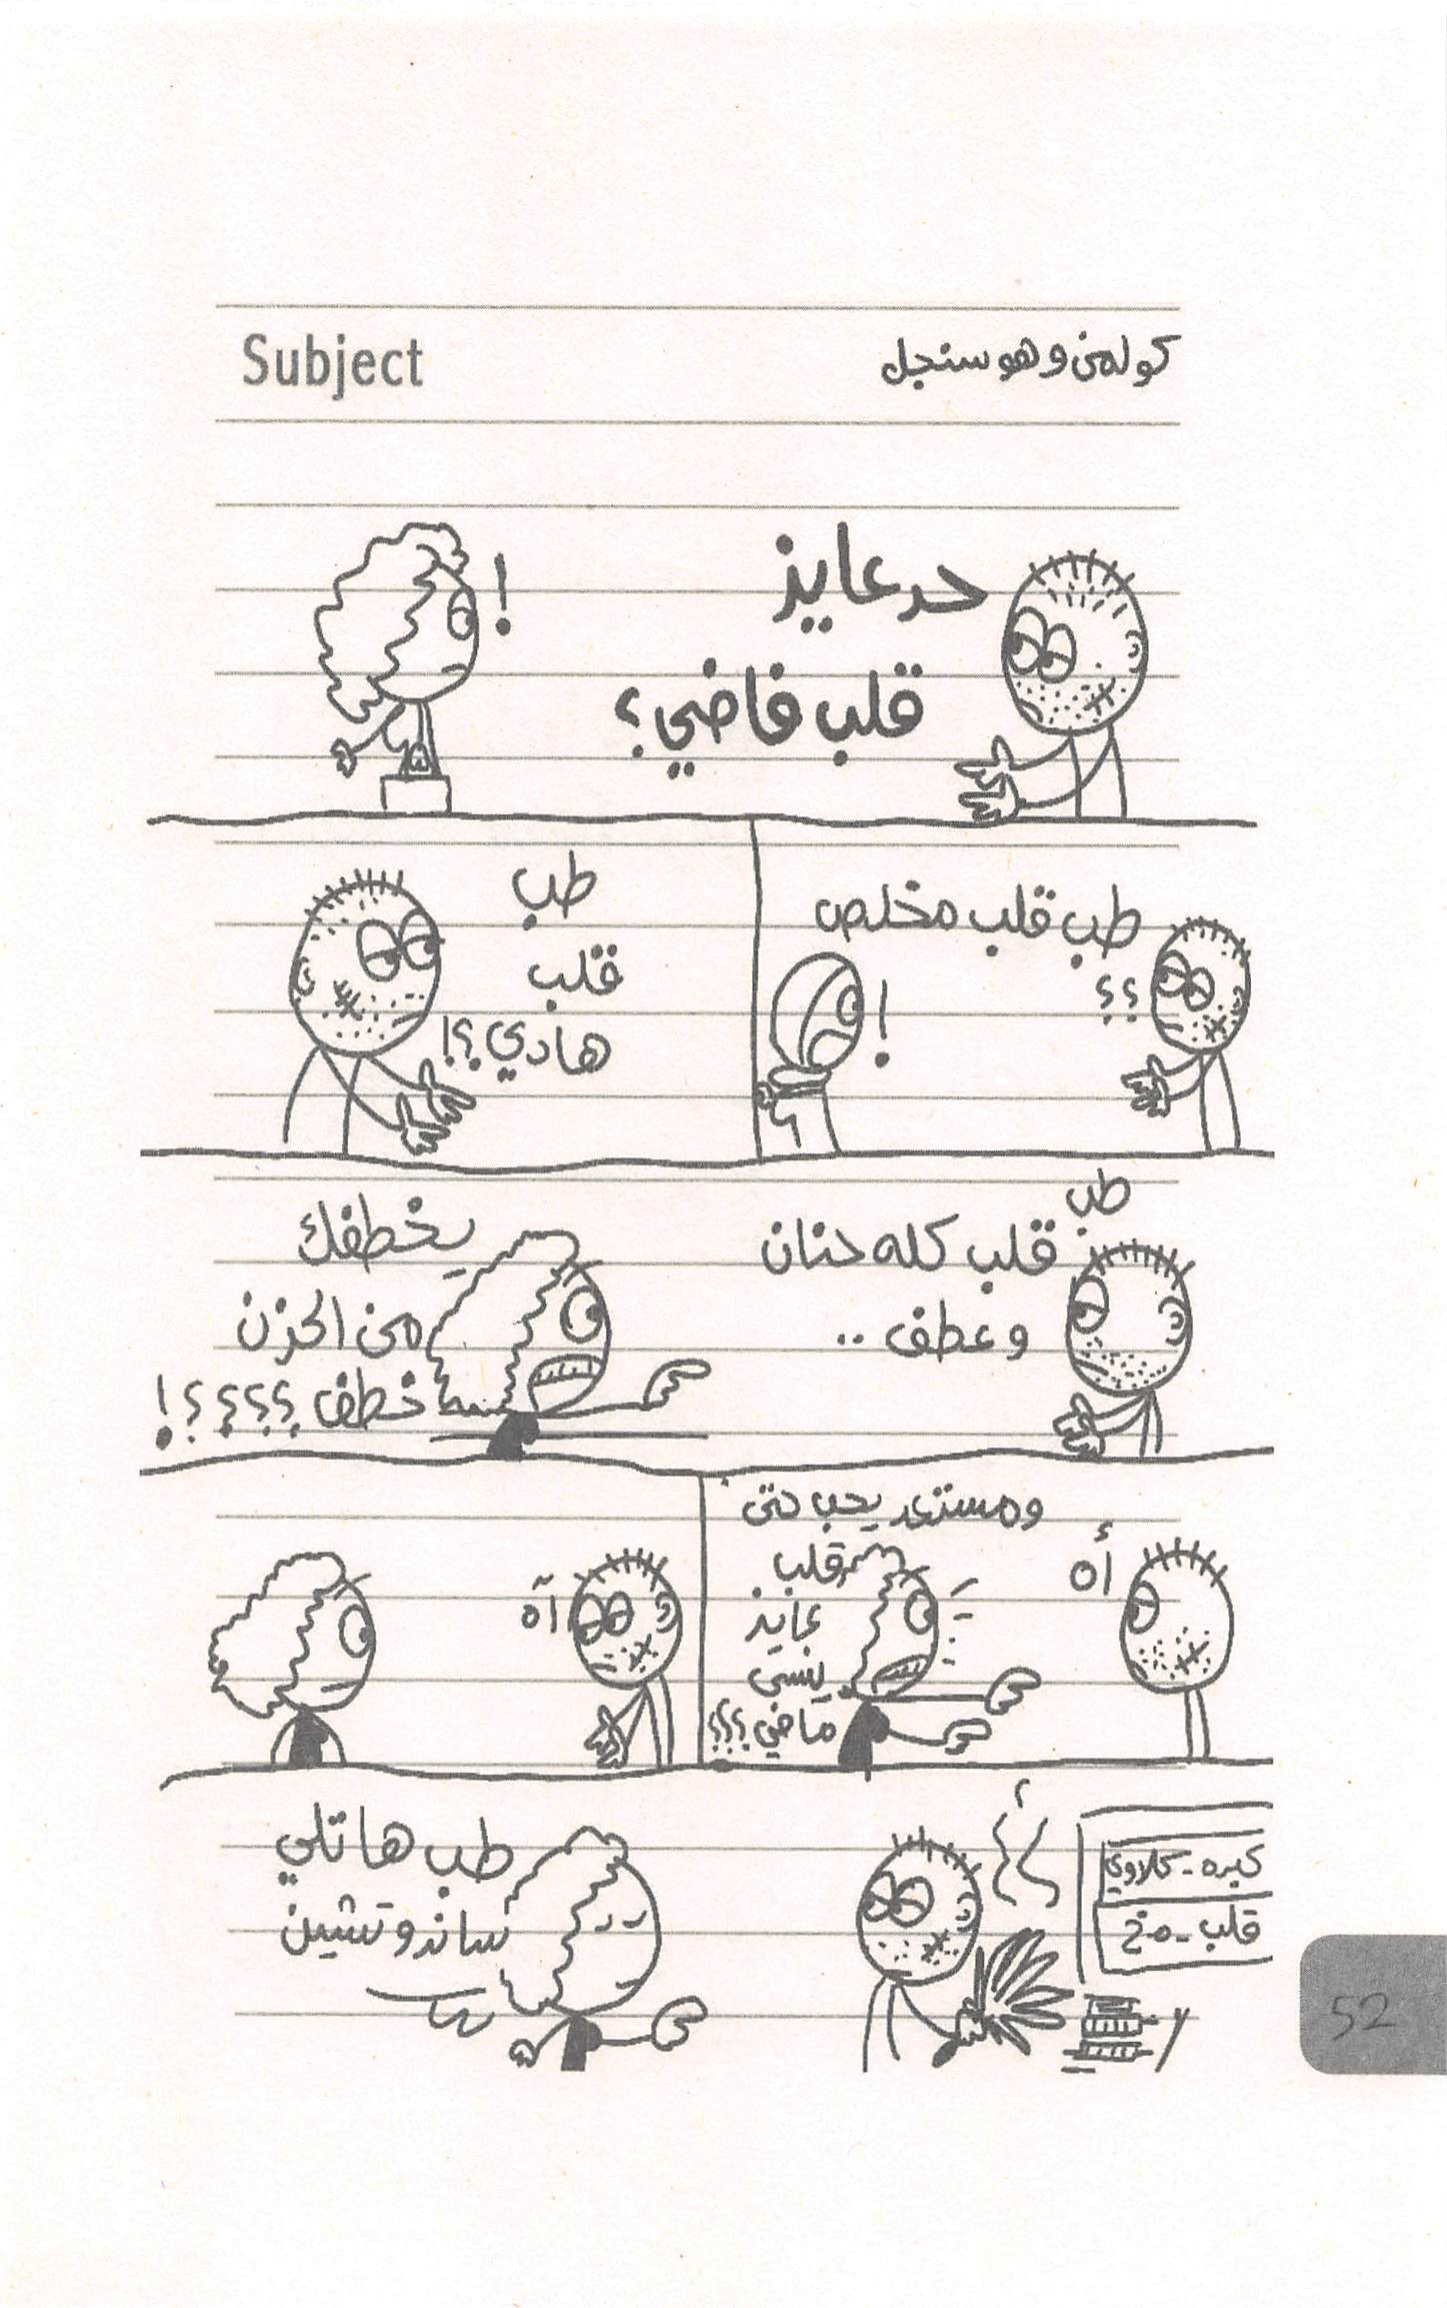 Subject
كولمن وهو سنجل
حد عايز
قلب فاضي؟
!
طب قلب مخلص
؟؟
!
طب
قلب
هادي؟!
طب
قلب كله حنان
وعطف ..
يخطفك
من الحزن
خطف ؟؟؟؟؟!
أه
ومستعد يحب حتى
قلب
عايز
ينسى
ماضي؟؟؟
آه
كبده - كلاوي
قلب - مخ
طب هاتلي
ساندوتشين
52